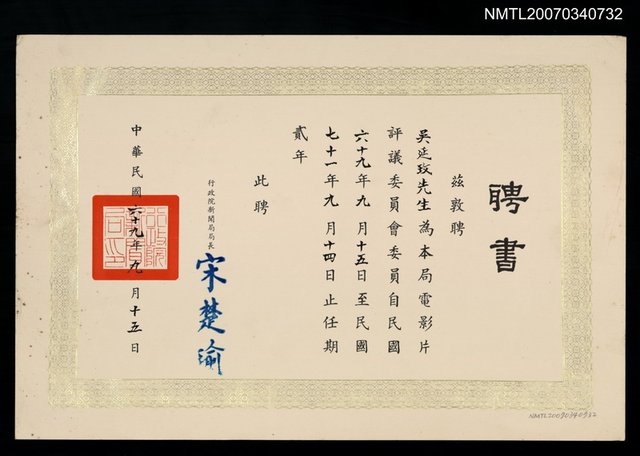 NMTL20070340732
聘書
茲敦聘
吳延玫先生為本局電影片
評議委員會委員自民國
六十九年九月十五日至民國
七十一年九月十四日止任期
貳年
此聘
行政院新聞局局長
宋楚瑜
中華民國六十九年九月十五日
NMTL20070340732